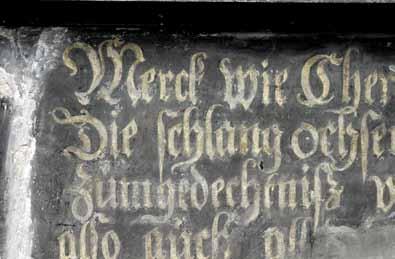 Merck wie Chr
Die schlang ochsen
Zumgedechtniß v
also auch